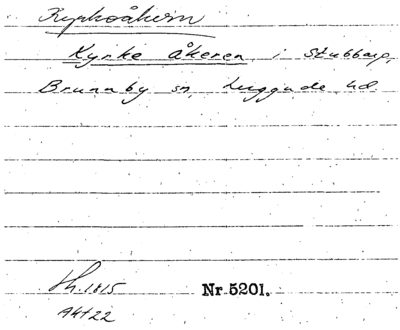 Kyrkoåkern
Kyrke åkeren i Stubbarp,
Brunnby sn, Luggude hd
Sh. 1815
Nr 5201.
A4122